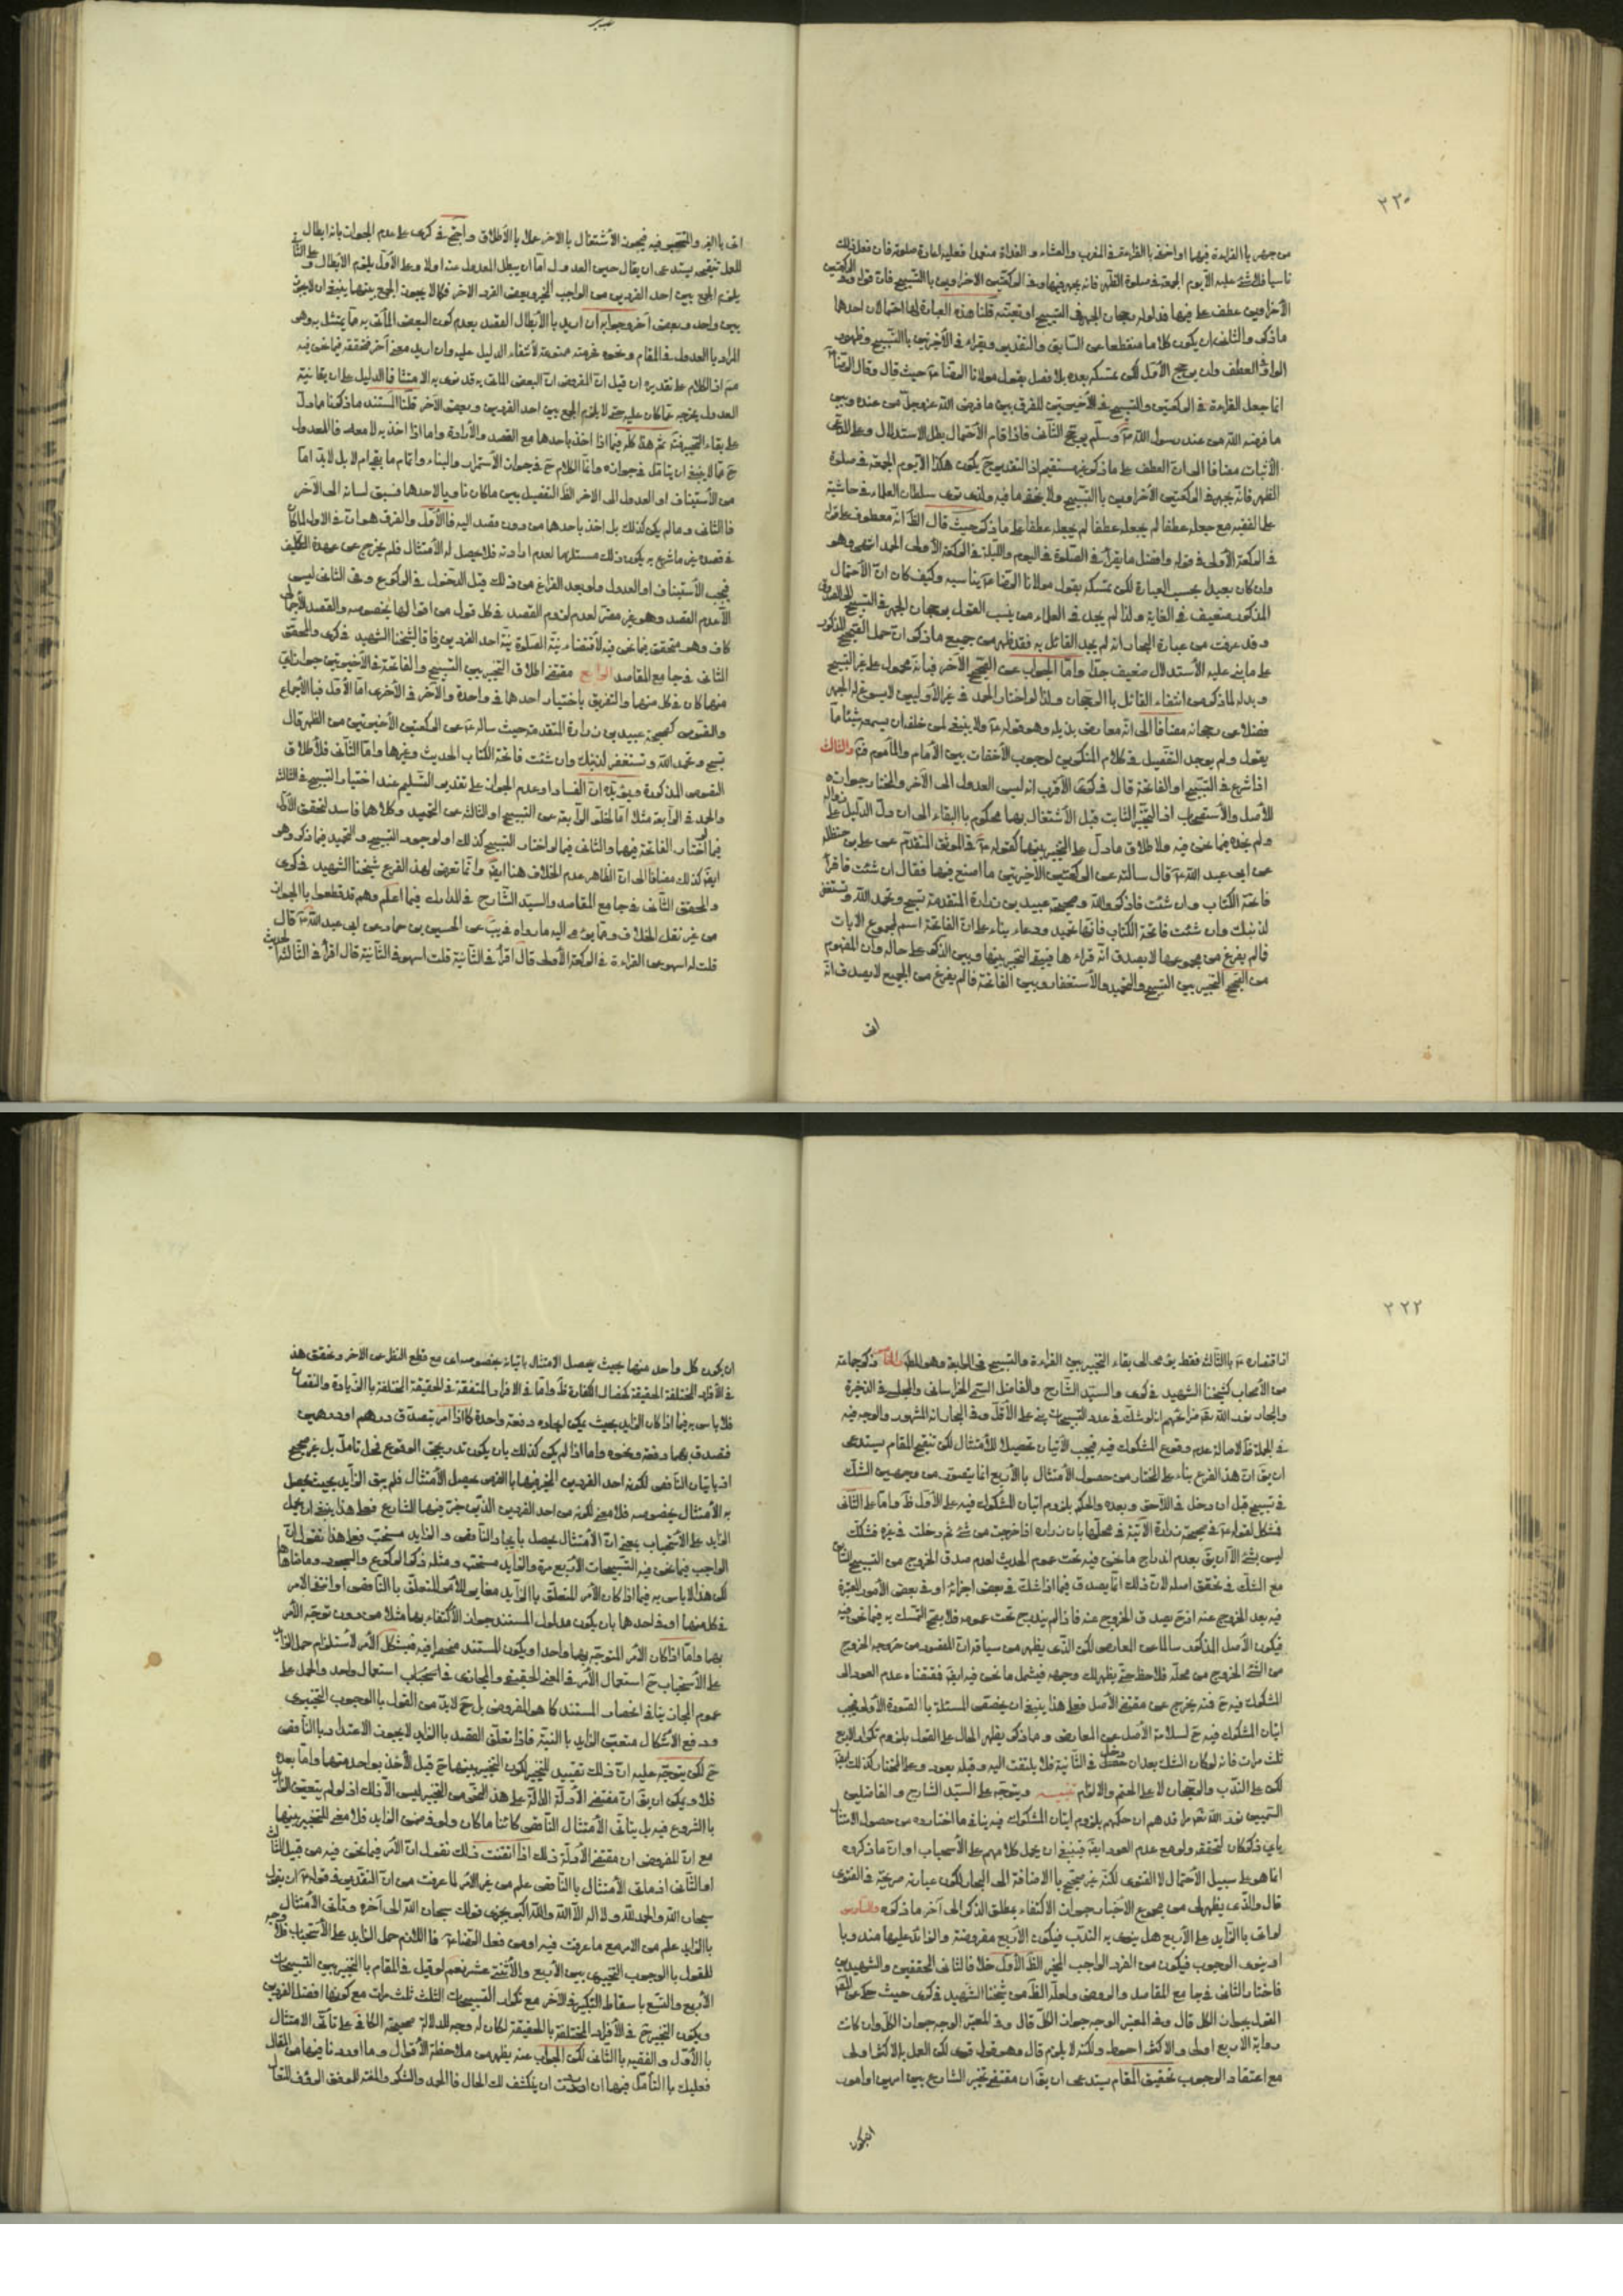 ٢٢٠
من جهر بالقراءة فيها او اخفى بالقراءة في المغرب والعشاء و الغداة متعمدا فعليه اعادة صلوته فان فعل ذلك
ناسيا فلا شئ عليه الا يوم الجمعة في صلوة الظهر فانه يجهر فيها وفي الركعتين الاخراوين بالتسبيح فان قوله وفي الركعتين
الاخراوين عطف على فيها فمدلوله رجحان الجهر في التسبيح او تعينه قلنا هذه العبارة لها احتمالان احدها
ما ذكر والثاني ان يكون كلاما منقطعا عن السابق والتقدير ويقراء في الأخيرتين بالتسبيح وظهور
الواو في العطف وان يرجح الأول لكن تمسكه بعده بلا فصل بقول مولانا الرضا ع حيث قال وقال الرضا ع
انما جعل القراءة في الركعتين والتسبيح في الأخيرتين للفرق بين ما فرض الله عز وجل من عنده وبين
ما فرضه الله من عند رسول الله ص وسلم يرجح الثاني فاذا قام الأحتمال بطل الاستدلال وعلى المدعى
الأثبات مضافا الى ان العطف على ما ذكر غير مستقيم اذ التقدير ح يكون هكذا الا يوم الجمعة في صلوة
الظهر فانه يجهر في الركعتين الأخراوين بالتسبيح ولا يخفى ما فيه ولذا ترى سلطان العلماء في حاشيته
على الفقيه مع جعله عطفا لم يجعله عطفا على ما ذكر حيث قال الظ انه معطوف على قوله
في الركعة الأولى في قوله وافضل ما يقرأ في الصلوة في اليوم والليلة في الركعة الأولى الحمد انتهى وهو
وان كان بعيدا بحسب العبارة لكن تمسكه بقول مولانا الرضا ع يناسبه وكيف كان ان الأحتمال
المذكور ضعيف في الغاية ولذا لم يجد في العلماء من ينسب القول برجحان الجهر في التسبيح الى الصدوق
وقد عرفت من عبارة البحار انه لم يجد القائل به فقد ظهر من جميع ما ذكر ان حمل الصحيح المذكور
على ما يخل عليه الأستدلال ضعيف جدا واما الجواب عن الصحيح الآخر فبانه محمول على غير التسبيح
ويدل لما ذكر من انتفاء القائل بالرجحان ولذا لو اختار الحمد في غير الأوليين لا يسوغ له الجهر
فضلا عن رجحانه مضافا الى انه معارض بذيله وهو قوله ع ولا ينبغي لمن خلفه ان يسمعه شيئا مما
يقول ولم يوجد التفصيل في كلام المنكرين لوجوب الأخفات بين الأمام والمأموم فت والثالث
اذا شرع في التسبيح او الفاتحة قال في كرى الأقرب انه ليس العدول الى الآخر والمختار جوازه
للأصل والأستصحاب اذ التخيير الثابت قبل الأشتغال بهما محكوم بالبقاء الى ان دل الدليل على زواله
ولم نجده فيما نحن فيه ولاطلاق ما دل على التخيير بينهما كقوله ع في الموثق المتقدم عن علي بن حنظلة
عن ابي عبد الله ع قال سالته عن الركعتين الاخيرتين ما اصنع فيهما فقال ان شئت فاقرأ
فاتحة الكتاب وان شئت فاذكر الله وصحيحة عبيد بن زرارة المتقدمة تسبح وتحمد الله وتستغفر
لذنبك وان شئت فاتحة الكتاب فانها تحميد ودعاء بناء على ان الفاتحة اسم لمجموع الايات
فالم يفرغ من مجموعها لا يصدق انه قراءها فيبقى التخيير بينها وبين الذكر على حاله وان المفهوم
من الصحيح التخيير بين التسبيح والتحميد والأستغفار وبين الفاتحة فالم يفرغ من الجميع لا يصدق انه
اتى
اتى بالمخير والتخيير فيه فيجوز الأشتغال بالاخر عملا بالأطلاق واحتج في كرى على عدم الجواز بانه ابطال
للعمل تنقيحه يستدعى ان يقال حين العدول اما ان يبطل المعدول عنه او لا وعلى الأول يلزم الأبطال وعلى الثاني
يلزم الجمع بين احد الفردين من الواجب المخير وبعض الفرد الاخر فكما لا يجوز الجمع بينهما ينبغي ان لا يجوز
بين واحد وبعض آخر وجوابه ان اريد بالأبطال القصد بعدم كون البعض المأتى به مما يمتثل به وهو
المراد بالعدول في المقام ونحوه فحرمته ممنوعة لأنتفاء الدليل عليه وان اريد معنى آخر فتحققه فيما نحن فيه
ممنوع اذ الكلام على تقديره ان قيل ان المفروض ان البعض المأتى به قد نوى به الامتثال فالدليل على ان بقاء نية
العدول يخرجه عما كان عليه حتى لا يلزم الجمع بين احد الفردين وبعض الآخر قلنا المستند ما ذكرنا مما دل
على بقاء التخيير فت ثم هذا كله فيما اذا اخذ باحدها مع القصد والأرادة واما اذا اخذ به لا معه فالعدول
ح مما لا ينبغي ان يتامل في جوازه وانما الكلام ح في جواز الأستمرار والبناء واتمام ما يقرأ او لا بل لابد اما
من الأستيناف او العدول الى الاخر الظ التفصيل بين ما كان ناويا لاحدها فسبق لسانه الى الآخر
فالثاني وما لم يكن كذلك بل اخذ باحدها من دون قصد اليه فالأول والفرق هو ان في الاول لما كان
في قصده غير ما شرع به يكون ذلك مستلزما لعدم ارادته فلا يحصل له الأمتثال فلم يخرج عن عهدة التكليف
فيجب الأستيناف او العدول ولو بعد الفراغ من ذلك قبل الدخول في الركوع وفي الثاني ليس
الا عدم القصد وهو غير مضر لعدم لزوم القصد في كل قول من اقوالها بخصوصه والقصد الأجمالى
كاف وهو متحقق فيما نحن فيه لأقتضاء نية الصلوة نية احد الفردين وفاقا لشيخنا الشهيد في كرى والمحقق
الثاني في جامع المقاصد الرابع مقتضى اطلاق التخيير بين التسبيح والفاتحة في الأخيرتين جواز اي
منهما كان في كل منهما والتفريق باختيار احدها في واحدة والآخر في الأخرى اما الأول فبالأجماع
والنصوص كصحيحة عبيد بن زرارة المتقدمة حيث ساله ع عن الركعتين الأخيرتين من الظهر قال
تسبح وتحمد الله وتستغفر لذنبك وان شئت فاتحة الكتاب الحديث وغيرها واما الثاني فلأطلاق
النصوص المذكورة ويؤيده ان الفساد او عدم الجواز على تقدير التسليم عند اختيار التسبيح في الثالثة
والحمد في الرابعة مثلا اما لخلو الرابعة عن التسبيح او الثالثة عن التحميد وكلاهما فاسد لتحقق الأول
فيما لو اختار الفاتحة فيهما والثاني فيما لو اختار التسبيح كذلك او لوجود التسبيح والتحميد فيما ذكر وهو
ايضا كذلك مضافا الى ان الظاهر عدم الخلاف هنا ايض وانما تعرض لهذا الفرع شيخنا الشهيد في كرى
والمحقق الثاني في جامع المقاصد والسيد الشارح في المدارك فيما اعلم وهم قد قطعوا بالجواز
من غير نقل الخلاف ومما يومى اليه ما رواه في يب عن الحسين بن حماد عن ابي عبد الله ع قال
قلت له اسهو عن القراءة في الركعة الأولى قال اقرأ في الثانية قلت اسهو في الثانية قال اقرأ في الثالثة الحديث
٢٢٢
اذا قتصاره ع بالثالث فقط يومى الى بقاء التخيير بين القراءة والتسبيح في الرابعة وهو المط الخامس ذكر جماعة
من الأصحاب كشيخنا الشهيد في كرى والسيد الشارح والفاضل السمي الخراساني والمجلسي في الذخيرة
والبحار نور الله تع مراقدهم انه لو شك في عدد التسبيحات بنى على الأقل وفي البحار انه المشهور والوجه فيه
في الجملة ظ لاصالة عدم وقوع المشكوك فيه فيجب الأتيان تحصيلا للأمتثال لكن تنقيح المقام يستدعى
ان يق ان هذا الفرع بناء على المختار من حصول الأمتثال بالأربع انما يتصور من وجهين الشك
في تسبيح قبل ان دخل في اللاحق وبعده والحكم بلزوم اتيان المشكوك فيه على الأول ظ واما على الثاني
فمشكل لقوله ع في صحيحة زرارة الآتية في محلها يا زرارة اذا خرجت من شئ ثم دخلت في غيره فشكك
ليس بشئ الا ان يق بعدم اندراج ما نحن فيه تحت عموم الحديث لعدم صدق الخروج من التسبيح الثاني
مع الشك في تحقق اصله لان ذلك انما يصدق فيما اذا شك في بعض اجزائه او في بعض الأمور المعتبرة
فيه بعد الخروج عنه اذ ح يصدق الخروج عنه فاذا لم يندرج تحت عمومه فلا يصح التمسك به فيما نحن فيه
فيكون الأصل المذكور سالما عن المعارض لكن الذى يظهر من سياق ان المقصود من خروجه الخروج
من الشئ الخروج من محله فلاحظ حتى يظهر لك وجهه فيشمل ما نحن فيه ايض فمقتضاه عدم العود الى
المشكوك فيه ح فنه يخرج عن مقتضى الأصل فعلى هذا ينبغي ان يختص المسئلة بالصورة الأولى فيجب
اتيان المشكوك فيه ح لسلامة الأصل عن المعارض ومما ذكر يظهر الحال على القول بلزوم تكرار الاربع
ثلث مرات فانه لو كان الشك بعد ان دخل في الثانية فلا يلتفت اليه وقبله يعود وعلى المختار كذلك ايض
لكن على الندب والرجحان لا على الحتم والالزام تنبيه ويتوجه على السيد الشارح والفاضلين
السميين نور الله تع مراقدهم ان حكمهم بلزوم اتيان المشكوك فيه ينافي ما اختاروه من حصول الامتثال
باي ذكر كان لتحققه ولو مع عدم العود ايض فينبغي ان يحمل كلامهم على الأستحباب او ان ما ذكروه
انما هو على سبيل الأحتمال لا الفتوى لكنه غير صحيح بالاضافة الى البحار لكون عبارته صريحة في الفتوى
قال والذى يظهر لى من مجموع الأخبار جواز الأكتفاء بمطلق الذكر الى آخر ما ذكره والسادس
لو اتى بالزايد على الأربع هل ينوى به الندب فيكون الأربع مفروضة والزائد عليها مندوبا
او ينوى الوجوب فيكون من الفرد الواجب المخير الظ الأول خلافا لثاني المحققين والشهيدين
فاختار الثاني في جامع المقاصد والروض ولعله الظ من شيخنا الشهيد في كرى حيث حكى عن المعتبر
القول بجواز الكل قال وفي المعتبر الوجه جواز الكل قال وفي المعتبر الوجه جواز الكل وان كانت
رواية الاربع اولى والاكثر احوط ولكنه لا يلزم قال وهو قول قوى لكن العمل بالاكثر اولى
مع اعتقاد الوجوب تحقيق المقام يستدعى ان يق ان مقتضى تخيير الشارع بين امرين او امور
ان يكون
ان يكون كل واحد منها بحيث يحصل الامتثال باتيانه بخصوصه اى مع قطع النظر عن الاخر وتحقق هذا
في الأفراد المختلفة الحقيقة كخصال الكفارة ظ واما في الافراد المتفقة في الحقيقة المختلفة بالزيادة والنقصان
فلا باس به فيما اذا كان الزايد بحيث يمكن ايجاده دفعة واحدة كما اذا امر بتصدق درهم او درهمين
فتصدق بهما دفعة ونحوه واما اذا لم يكن كذلك بان يكون تدريجى الوقوع فمحل تامل بل غير صحيح
اذ باتيان الناقص لكونه احد الفردين المخير فيهما بالفرض يحصل الأمتثال فلم يبق الزايد بحيث يحصل
به الأمتثال بخصوصه فلا معنى لكونه من احد الفردين الذين خير فيهما الشارع فعلى هذا ينبغي ان يحمل
الزايد على الأستحباب بمعنى ان الأمتثال يحصل بايجاد الناقص والزايد مستحب فعلى هذا نقول ان
الواجب فيما نحن فيه التسبيحات الأربع مرة والزايد مستحب ومثله ذكر الركوع والسجود وما ضاهاها
لكن هذا لا باس به فيما اذا كان الأمر المتعلق بالزايد مغاير للأمر المتعلق بالناقص او انتفى الامر
في كل منهما او في احدها بان يكون مدلول المستند جواز الأكتفاء بهما مثلا من دون توجه الأمر
بهما واما اذا كان الأمر المتوجه بهما واحدا ويكون المستند منحصرا فيه فيشكل الأمر لأستلزام حمل الزايد
على الأستحباب ح استعمال الأمر في المعنى الحقيقي والمجازى في استعمال واحد والحمل على
عموم المجاز ينافي انحصار المستند كما هو المفروض بل ح لابد من القول بالوجوب التخييرى
ودفع الأشكال متعين الزايد بالنية فاذا تعلق القصد بالزايد لا يجوز الاعتداد بالناقص
ح لكن يتوجه عليه ان ذلك تقييد للتخيير لكون التخيير بينهما ح قبل الأخذ بواحد منهما واما بعده
فلا ويمكن ان يق ان مقتضى الأدلة الدالة على هذا النحو من التخيير ليس الا ذلك اذ لو لم يتعين الزايد
بالشروع فيه بل يتاتى الأمتثال الناقص كائنا ما كان ولو في ضمن الزايد فلا معنى للتخيير بينهما
مع ان المفروض ان مقتضى الأدلة ذلك اذا اتقنت ذلك نقول ان الأمر فيما نحن فيه من قبيل الثاني
او الثاني اذ ما في الأمتثال بالناقص علم من غير الأمر لما عرفت من ان التقدير في قوله ع ان يقول
سبحان الله والحمد لله ولا اله الا الله والله اكبر يجزى قولك سبحان الله الى آخره وتاتى الأمتثال
بالزايد علم من الامر مع ما عرفت فيه او من فعل الرضا ع فاللازم حمل الزايد على الأستحباب فلا وجه
للقول بالوجوب التخييرى بين الأربع والأثنتى عشر نعم لو قيل في المقام بالتخيير بين التسبيحات
الأربع والتسع باسقاط التكبير في الآخر مع تكرار التسبيحات الثلث ثلث مرات مع كونها افضل الفردين
ويكون التخيير ح في الأفراد المختلفة بالحقيقة لكان له وجه لدلالة صحيحة الكافي على تاتى الامتثال
بالأول والفقيه بالثاني لكن الجواب عنه يظهر من ملاحظة الأقوال وما اوردنا فيها من المقال
فعليك بالتأمل فيها ان اردت ان ينكشف لك الحال فالحمد والشكر والمنة للموفق الرؤف المتعال